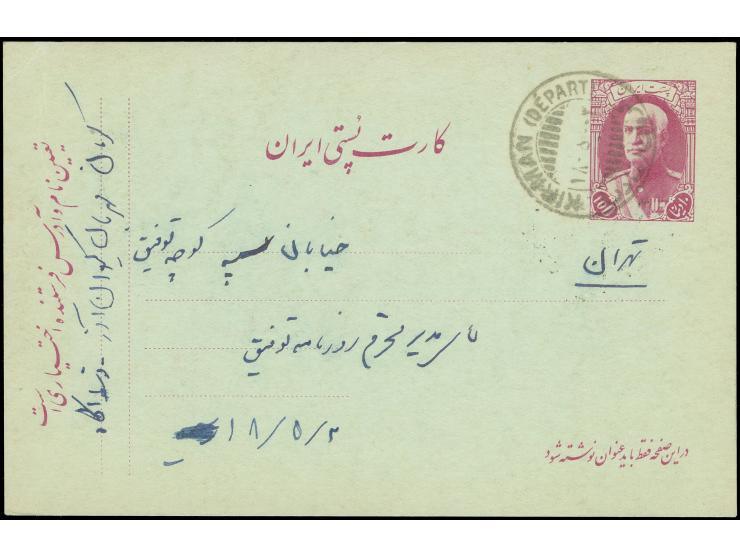 پست ایران
KIRMAN (DÉPART
کارت پستی ایران
تهران
خیابان سپه کوچه توفیق
مدیر محترم روزنامه توفیق
۱۸/۵/۲
در این صفحه فقط باید عنوان نوشته شود
تعیین نام و آدرس فرستنده اختیاری است
کرمان